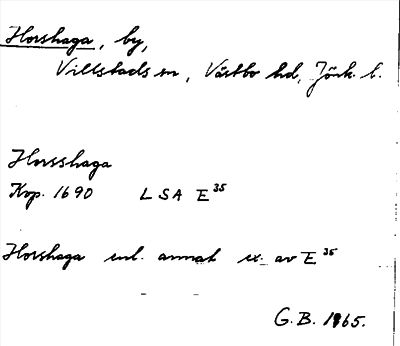 Horshaga, by,
Villstads sn, Västbo hd, Jönk. l.
Horsshaga
Kop. 1690 LSA E 35
Horshaga enl. annat ex. av E 35
G.B. 1965.